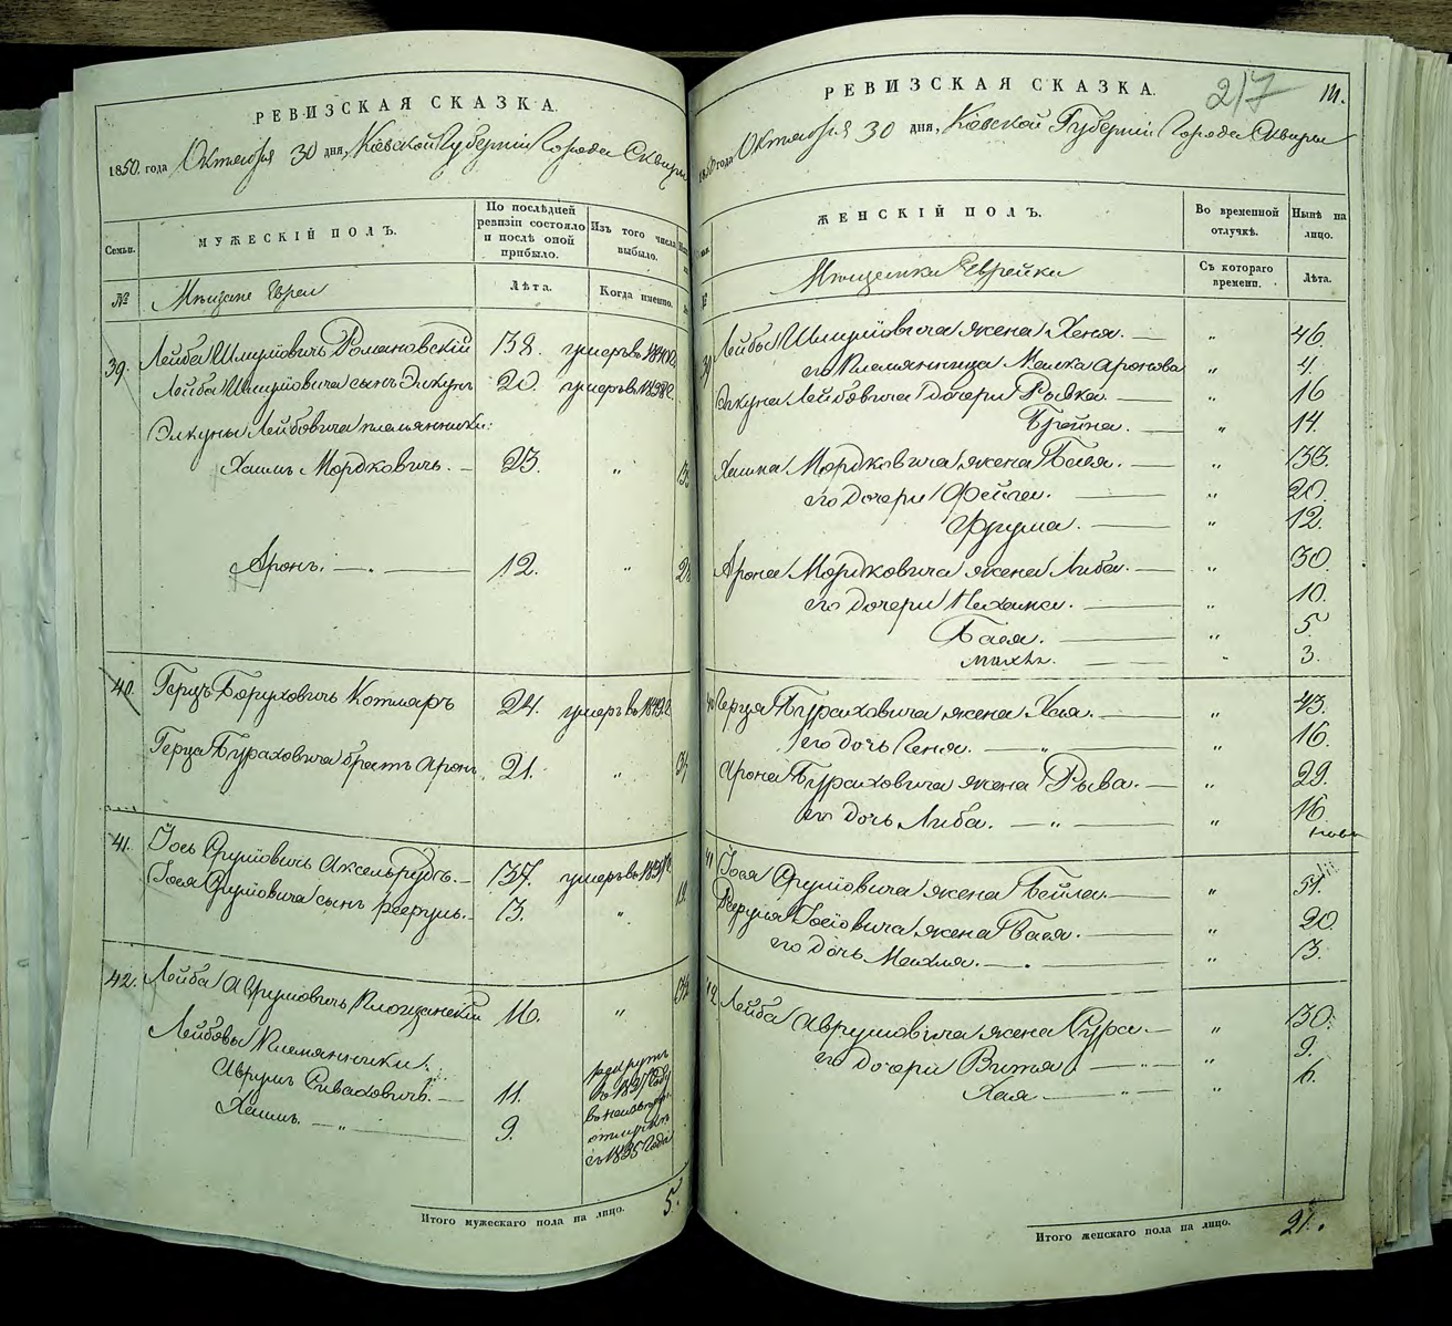 РЕВИЗСКАЯ СКАЗКА.
1850 года Октября 30 дня, Кіевской Губерніи Города Сквиры
Семьи.
МУЖЕСКІЙ ПОЛЪ.
По послѣдней ревизіи состояло и послѣ оной прибыло.
Изъ того числа выбыло.
№
Мѣщане Евреи
Лѣта.
Когда именно.
39. Лейба Шмулiовичь Романовскій 38. умеръ въ 1840 г.
Лейба Шмулiовича сынъ Элкунъ 20. умеръ въ 1838 г.
Элкуны Лейбовича племянники:
Хаимъ Мордковичь. — 23. „
Аронъ. — 12. „
40. Герцъ Боруховичь Котляръ 24. умеръ въ 1849 г.
Герца Бураховича братъ Аронъ. 21. „
41. Іось Сруліовичь Аксельрудъ. — 37. умеръ въ
Іося Сруліовича сынъ — 3. „
42. Лейба Аврумовичь 16. „
Лейбовы Племянники:
Аврумъ — 11. рекрутъ
Хаимъ. — „ — 9.
съ 1835 Года
Итого мужескаго пола на лицо. 5.
РЕВИЗСКАЯ СКАЗКА. 217
1850 года Октября 30 дня, Кіевской Губерніи Города Сквиры
ЖЕНСКІЙ ПОЛЪ.
Во временной отлучкѣ.
Нынѣ на лицо.
№
Мѣщанки Еврейки
Съ котораго времени.
Лѣта.
39 Лейбы Шмулiовича жена Хеня. — „ 46.
его Племянница Малка Аронова „ 4.
Элкуна Лейбовича дочери Рывка. — „ 16
Брейна. — „ 14.
Хаима Мордковича жена Бася. — „ 33.
его дочери Фейга. — „ 20.
Фрума. — „ 12.
Арона Мордковича жена Либа. — „ 30.
его дочери „ 10.
Бася. — „ 5.
— „ 3.
40 Герца Бураховича жена Хая. — „ 43.
его дочь Геня. — „ — „ 16.
Арона Бураховича жена Рыва. — „ 29.
его дочь Либа. — „ — „ 16
41 Іося Сруліовича жена Бейла. — „
Іосіовича жена Бася. — „ 20.
его дочь — „ 3.
42 Лейба Аврумовича жена Сура. — „ 30.
его дочери „ 9.
Хая — „ 6.
Итого женскаго пола на лицо. 21.